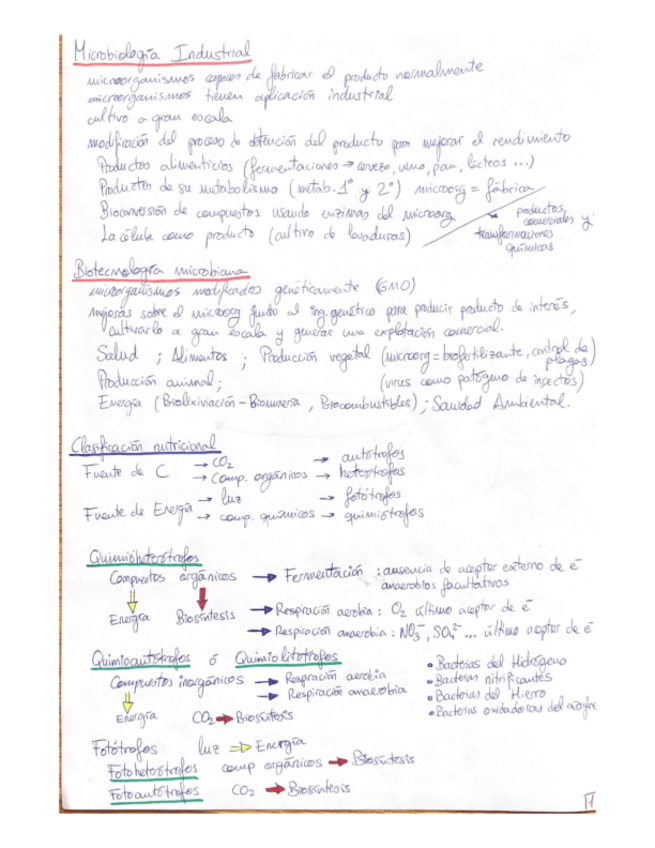 Microbiología Industrial
microorganismos capaces de fabricar el producto normalmente
microorganismos tienen aplicación industrial
cultivo a gran escala
modificación del proceso de obtención del producto para mejorar el rendimiento
Productos alimenticios (fermentaciones → cerveza, vino, pan, lácteos ...)
Productos de su metabolismo (metab. 1º y 2º) microorg = fábrica
Bioconversión de compuestos usando enzimas del microorg
productos, comerciales y transformaciones químicas
La célula como producto (cultivo de levaduras)
Biotecnología microbiana
microorganismos modificados genéticamente (GMO)
mejoras sobre el microorg junto al ing. genético para producir producto de interés,
cultivarlo a gran escala y generar una explotación comercial.
Salud ; Alimentos ; Producción vegetal (microorg = biofertilizante, control de plagas)
Producción animal; (virus como patógeno de insectos)
Energía (Biolixiviación - Biominería, Biocombustibles) ; Sanidad Ambiental.
Clasificación nutricional
Fuente de C → CO2 → autótrofos
→ Comp. orgánicos → heterótrofos
Fuente de Energía → luz → fotótrofos
→ comp. químicos → quimiótrofos
Quimioheterótrofos
Compuestos orgánicos → Fermentación : ausencia de aceptor externo de e-
anaerobios facultativos
Energía Biosíntesis → Respiración aerobia : O2 último aceptor de e-
→ Respiración anaerobia : NO3-, SO4 2- ... último aceptor de e-
Quimioautótrofos ó Quimiolitotrofos
Compuestos inorgánicos → Respiración aerobia
→ Respiración anaerobia
Energía CO2 → Biosíntesis
• Bacterias del Hidrógeno
• Bacterias nitrificantes
• Bacterias del Hierro
• Bacterias oxidadoras del azufre
Fotótrofos luz ⇒ Energía
Fotoheterótrofos comp orgánicos → Biosíntesis
Fotoautótrofos CO2 → Biosíntesis